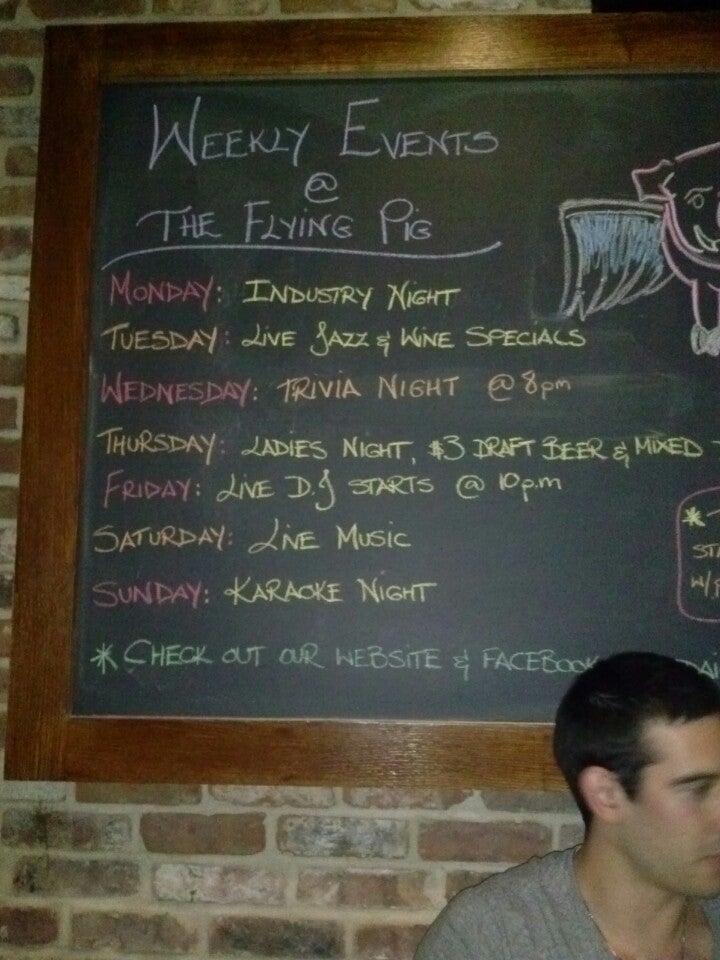 WEEKLY EVENTS
@
THE FLYING PIG
MONDAY: INDUSTRY NIGHT
TUESDAY: LIVE JAZZ & WINE SPECIALS
WEDNESDAY: TRIVIA NIGHT @ 8pm
THURSDAY: LADIES NIGHT, $3 DRAFT BEER & MIXED
FRIDAY: LIVE D.J STARTS @ 10p.m
SATURDAY: LIVE MUSIC
SUNDAY: KARAOKE NIGHT
* CHECK OUT OUR WEBSITE & FACEBOOK
*
W/